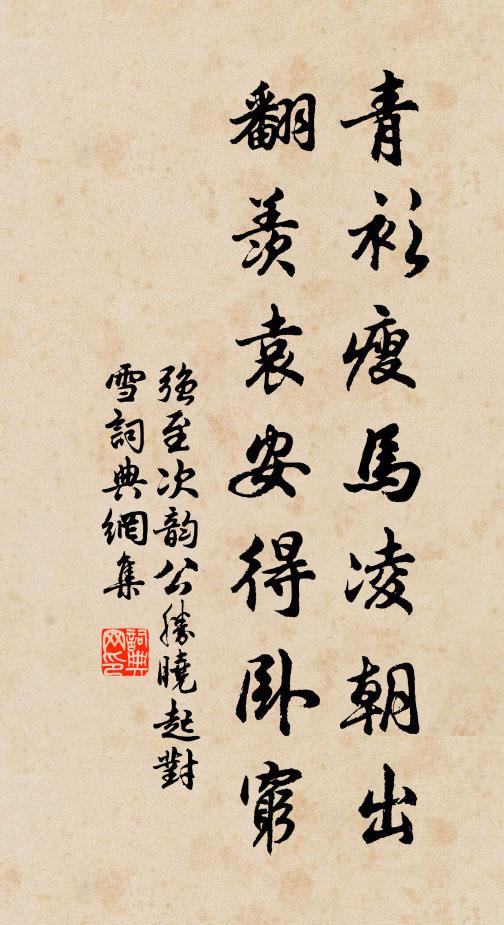 青衫瘦馬凌朝出
翻羨袁安得卧窮
強至次韵公勝曉起對
雪詞典網集
詞典網印